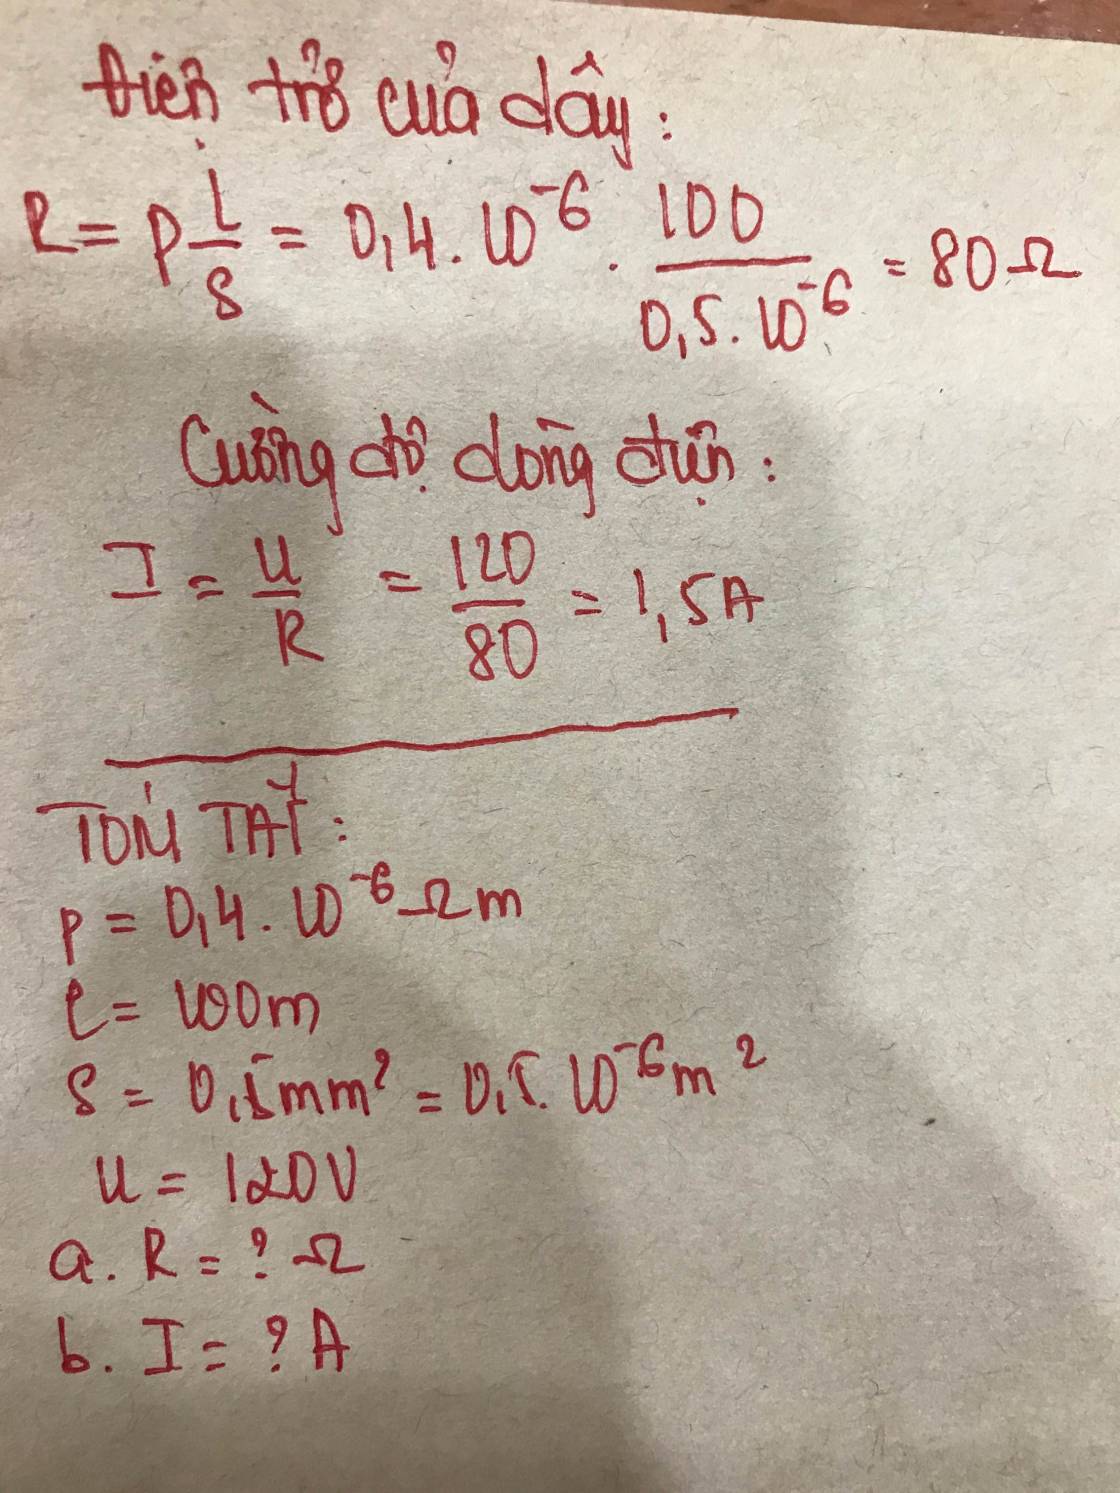 Điện trở của dây:
R = ρ l/S = 0,4.10⁻⁶ . 100/0,5.10⁻⁶ = 80Ω
Cường độ dòng điện:
I = U/R = 120/80 = 1,5A
TÓM TẮT:
ρ = 0,4.10⁻⁶ Ωm
l = 100m
S = 0,5mm² = 0,5.10⁻⁶m²
U = 120V
a. R = ? Ω
b. I = ? A